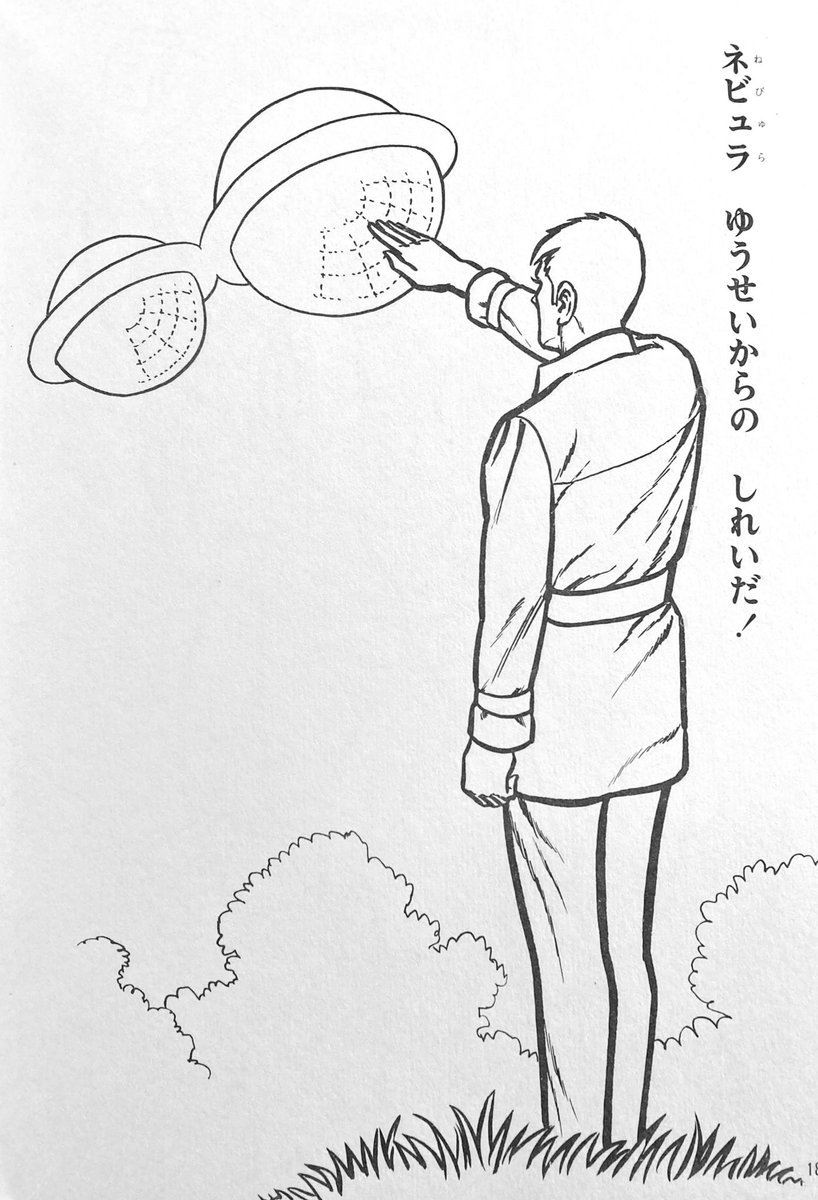 ネビュラ ゆうせいからの しれいだ!
ねびゅら
18